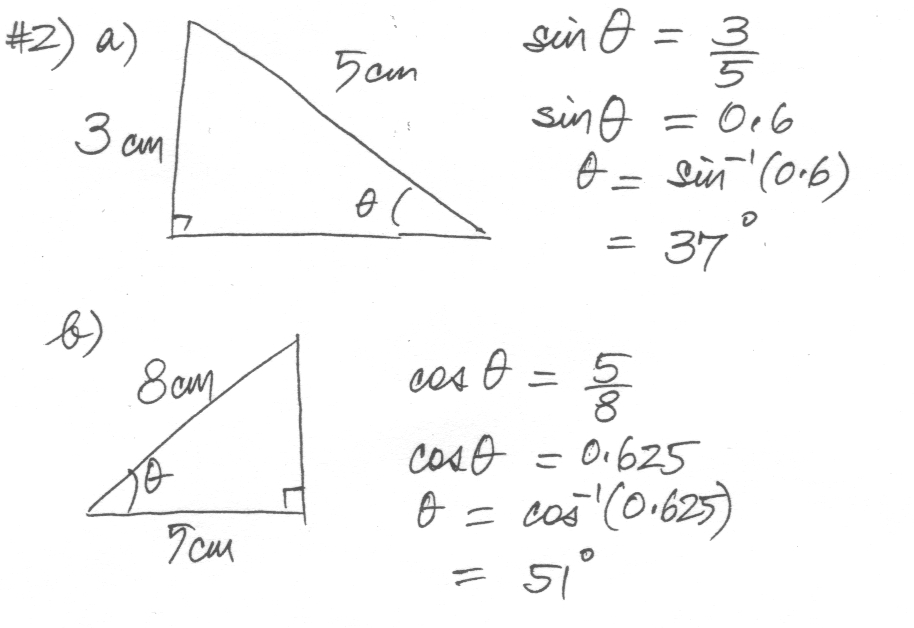 #2) a)
5cm
3 cm
θ
sin θ = 3/5
sin θ = 0.6
θ = sin⁻¹(0.6)
= 37°
b)
8cm
θ
5cm
cos θ = 5/8
cos θ = 0.625
θ = cos⁻¹(0.625)
= 51°